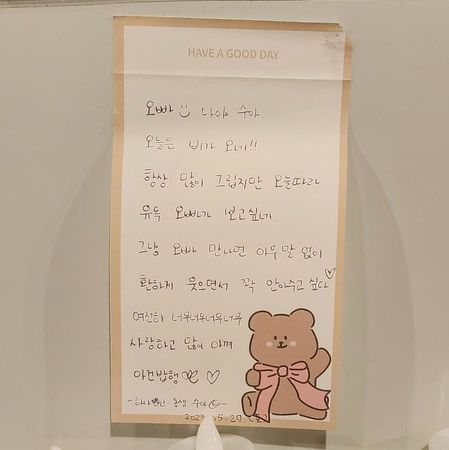 HAVE A GOOD DAY
오빠 나야 수아.
오늘은 비가 오네!!
항상 많이 그립지만 오늘따라
유독 오빠가 보고싶네
그냥 오빠 만나면 아무말 없이
환하게 웃으면서 꽉 안아주고 싶다♡
여전히 너무너무너무너무
사랑하고 많이 아껴
아컨밥행 ♡
-하나뿐인 동생 수아-
5. 27